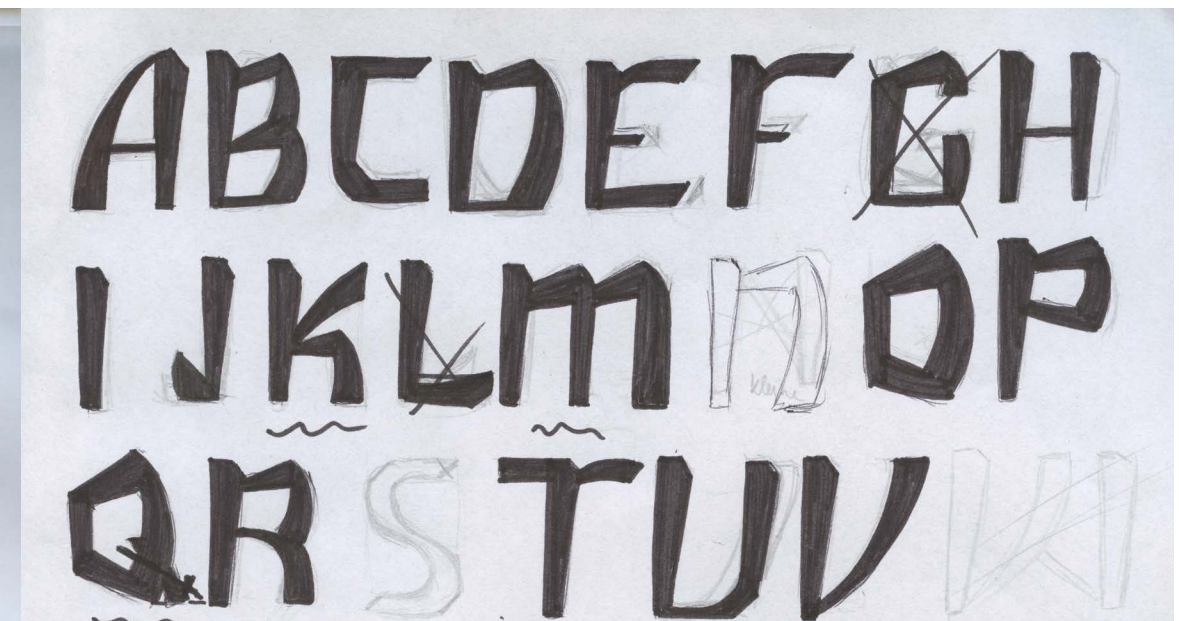 ABCDEFGH
IJKLMNOP
QRSTUVW